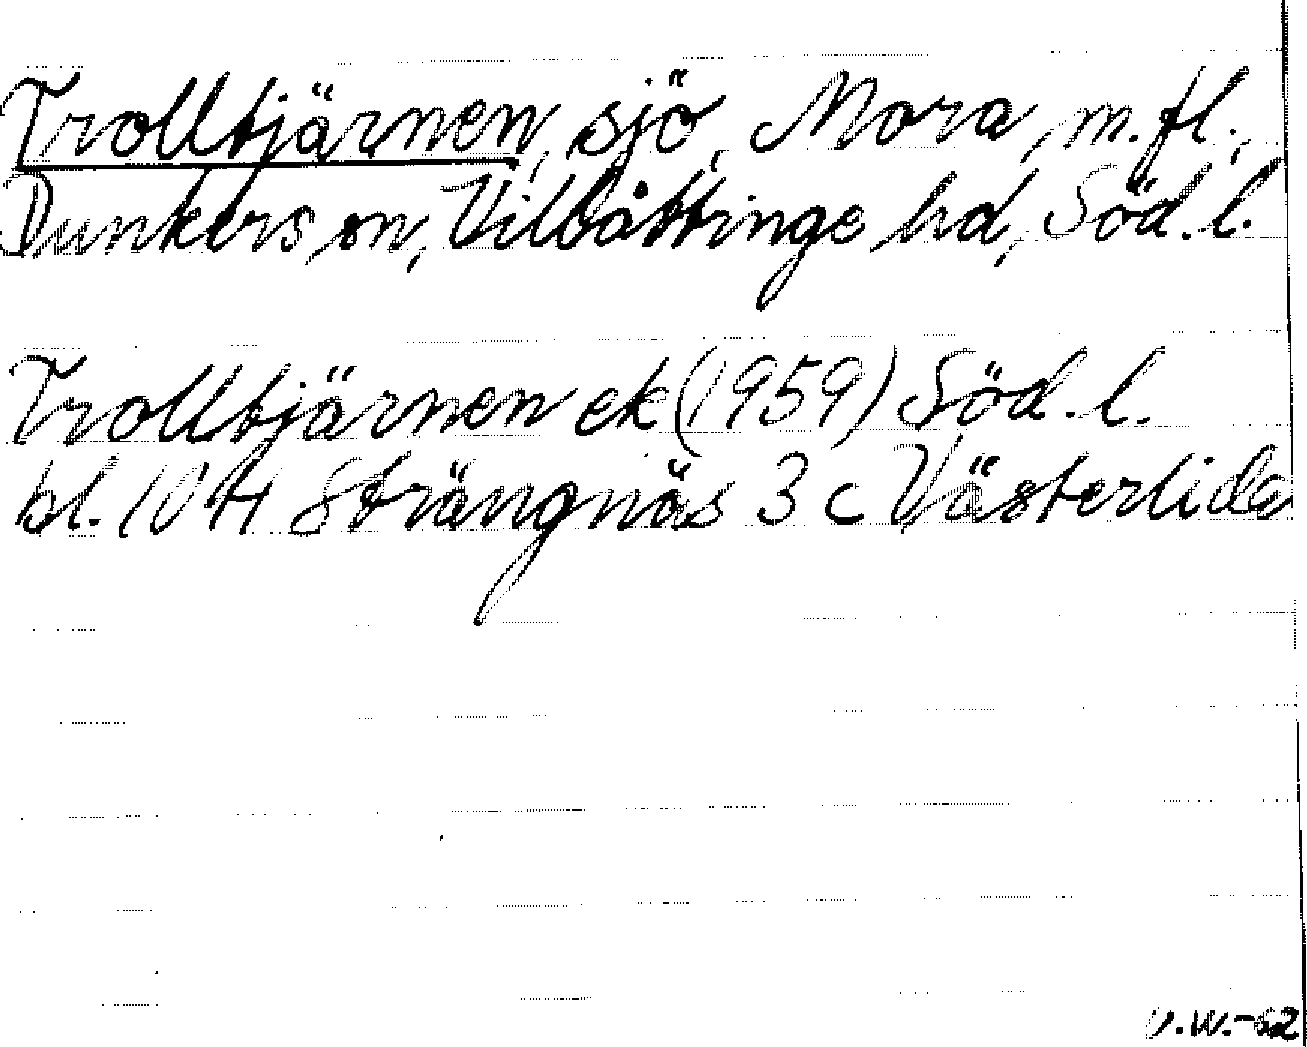 Trolltjärnen, sjö, Mora, m.fl.,
Dunkers sn, Villåttinge hd, Söd.l.
Trolltjärnen ek (1959) Söd.l.
bl. 10 H Strängnäs 3 c Västerlida
V.W.-62